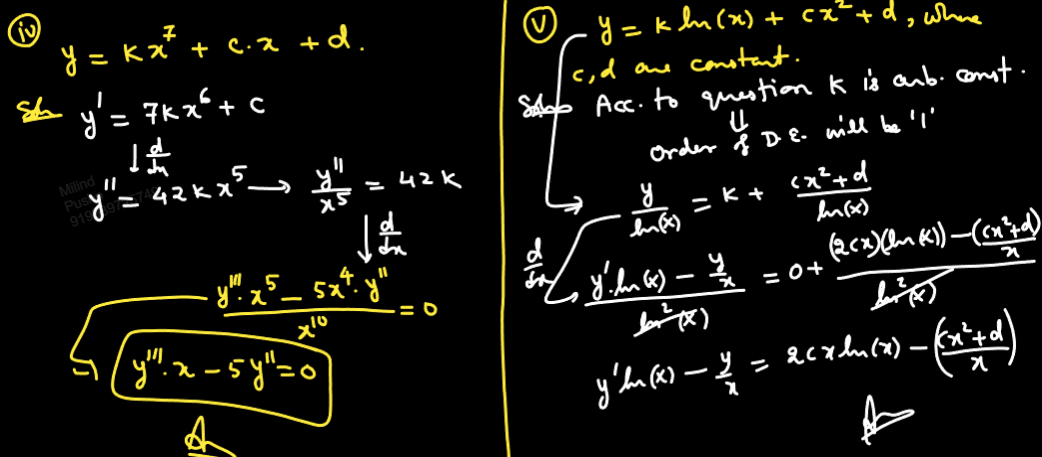 (iv) y = kx⁷ + c.x + d.
Soln y' = 7kx⁶ + c
↓ d/dx
y'' = 42kx⁵ → y''/x⁵ = 42k
↓ d/dx
(y'''.x⁵ − 5x⁴.y'')/x¹⁰ = 0
y'''.x − 5y'' = 0
A
(v) y = k ln(x) + cx² + d, where
c, d are constant.
Soln Acc. to question k is arb. const.
⇓
order of D.E. will be '1'
y/ln(x) = k + (cx² + d)/ln(x)
d/dx
(y'.ln(x) − y/x)/ln²(x) = 0 + ((2cx)(ln(x)) − (cx²+d)/x)/ln²(x)
y'ln(x) − y/x = 2cx ln(x) − ((cx²+d)/x)
A
Milind